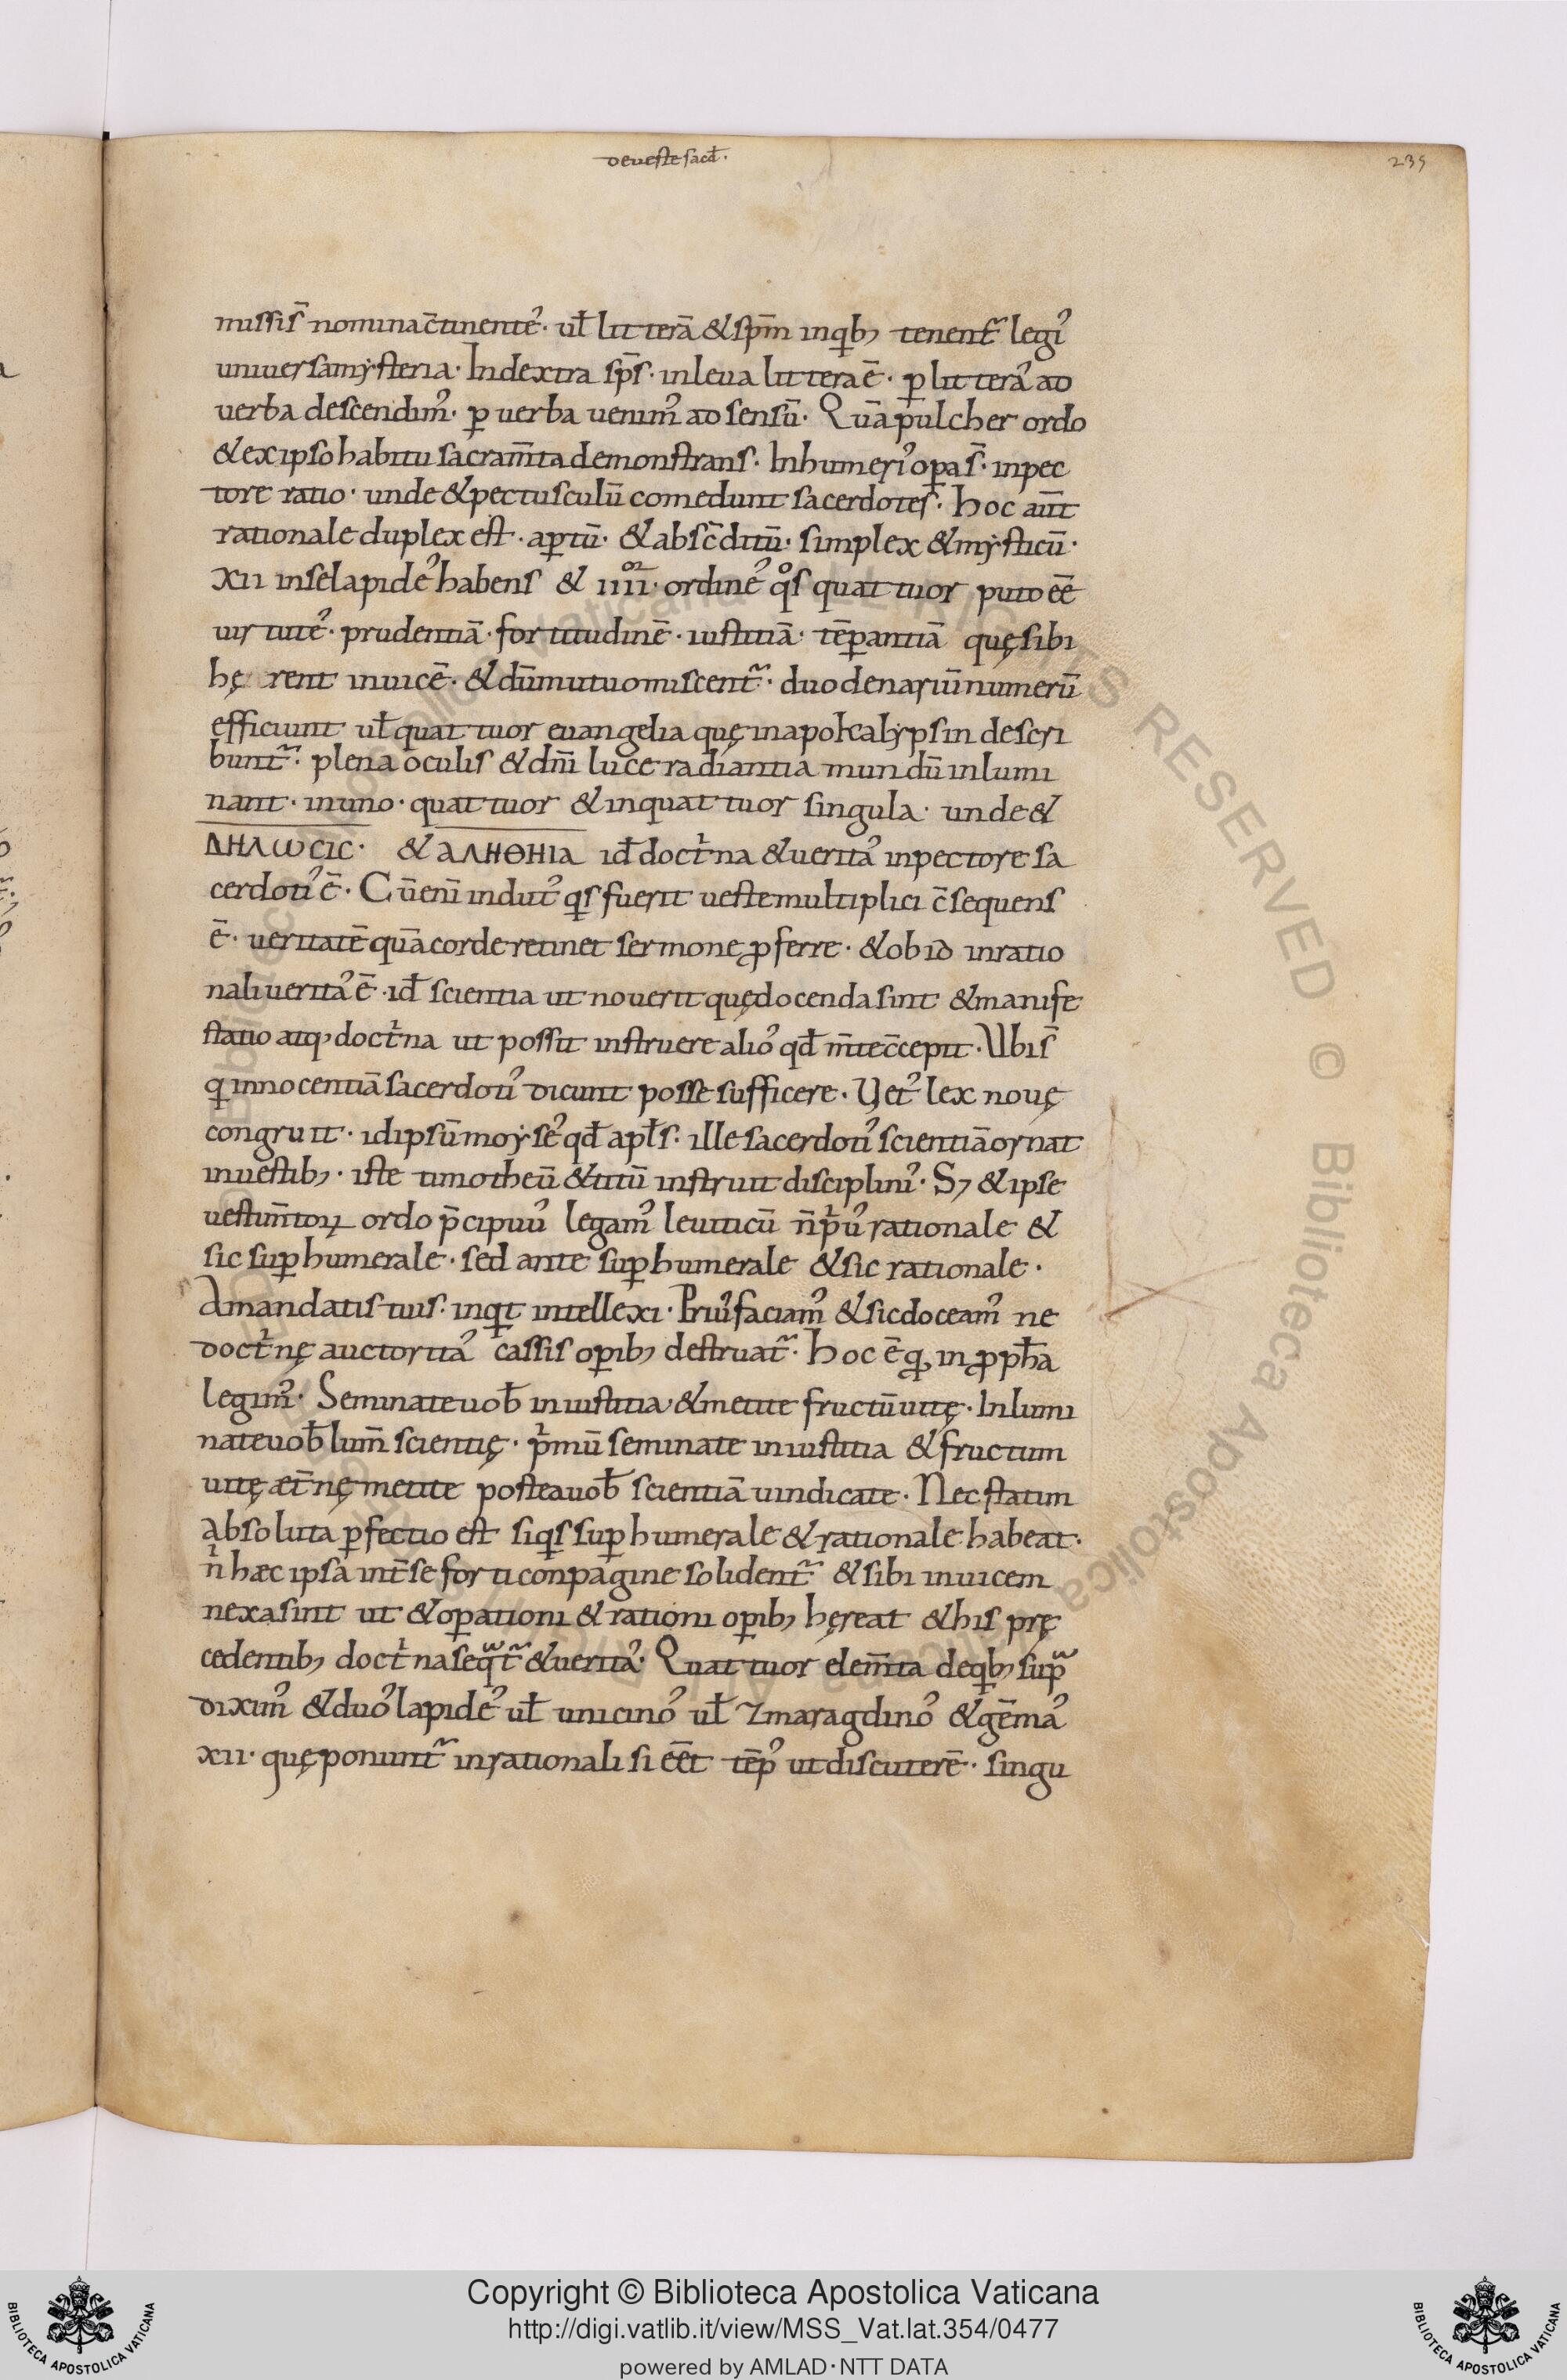 de ueste sacd̄.
235
missis̄ nomina c̄tinente᾿· ul̄ litterā & sp̄m in qib; tenent̄ legi᾿
uniuersa mẏsteria· In dextra sp̄s· in leua littera ē· ꝑ litterā ad
uerba descendim᾿· ꝑ uerba uenim᾿ ad sensū· Quā pulcher ordo
& ex ipso habitu sacram̄ta demonstrans· In humeri᾿ oꝑa s̄· in pec
tore ratio· unde & pectusculū comedunt sacerdotes· hoc aūt
rationale duplex est· aꝑtū· & absc̄ditū· simplex & mẏsticū·
xii in se lapide᾿ habens & iiii᷒ʳ· ordine᾿ qͦs quattuor puto ēē
uirtute᾿· prudentiā· fortitudinē· iustitiā· tēꝑantiā quę sibi
hę rent inuicē· & dū mutuo miscent̄· duodenariū numerū
efficiunt ul̄ quattuor euangelia quę in apokalẏpsin descri
bunt̄· plena oculis & dn̄i luce radiantia mundū inlumi
nant· in uno· quattuor & in quattuor singula· unde &
ΔΗΛωCΙC· & αΛΗΘΗΙα id̄ doctͥna & uerita᾿ in pectore sa
cerdoti᾿ ē· Cū eni̅ indut᾿ qis fuerit ueste multiplici c̄sequens
ē· ueritatē quā corde retinet sermone ꝓferre· & ob id in ratio
nali uerita᾿ ē· id̄ scientia ut nouerit quę docenda sint & manife
statio atq; doctͥna ut possit instruere alio᾿ qd̄ m̄te c̄cepit· Ubi s̄
qͥ innocentiā sacerdoti᾿ dicunt posse sufficere· Uet᾿ lex nouę
congruit· id ipsū moẏse᾿ qd̄ apl̄s· ille sacerdoti᾿ scientiā ornat
in uestib;· iste timotheū & titū instruit disciplini᾿· S; & ipse
uestim̄toꝝ ordo p̄cipuu᾿ legam᾿ leuiticū n̄ pͥu᾿ rationale &
sic suꝑhumerale· sed ante suꝑhumerale & sic rationale·
A mandatis tuis· inqit intellexi· Priu᾿ faciam᾿ & sic doceam᾿ ne
doctͥnę auctorita᾿ cassis oꝑib; destruat̄· hoc ē q; in ꝓph̄a
legim᾿· Seminate uob̄ in iustitia & metite fructū uitę· Inlumi
nate uob̄ lum̄ scientię· pͥmū seminate in iustitia & fructum
uitę æt̄nę metite postea uob̄ scientiā uindicate· Nec statim
absoluta ꝑfectio est siqis suꝑhumerale & rationale habeat·
nͥ hæc ipsa int̄ se forti conpagine solident̄ & sibi inuicem
nexa sint ut & oꝑationi & rationi oꝑib; hęreat & his prę
cedentib; doctͥna seqᷓt̄ & uerita᾿· Quattuor elem̄ta de qib; supᷓ
dixim᾿ & duo᾿ lapide᾿ ul̄ unicino᾿ ul̄ zmaragdino᾿ & gēma᾿
xii· quę ponunt̄ in rationali si ēēt tēp᾿ ut discuterē· singu
Copyright © Biblioteca Apostolica Vaticana
http://digi.vatlib.it/view/MSS_Vat.lat.354/0477
powered by AMLAD·NTT DATA
BIBLIOTECA APOSTOLICA VATICANA
BIBLIOTECA APOSTOLICA VATICANA